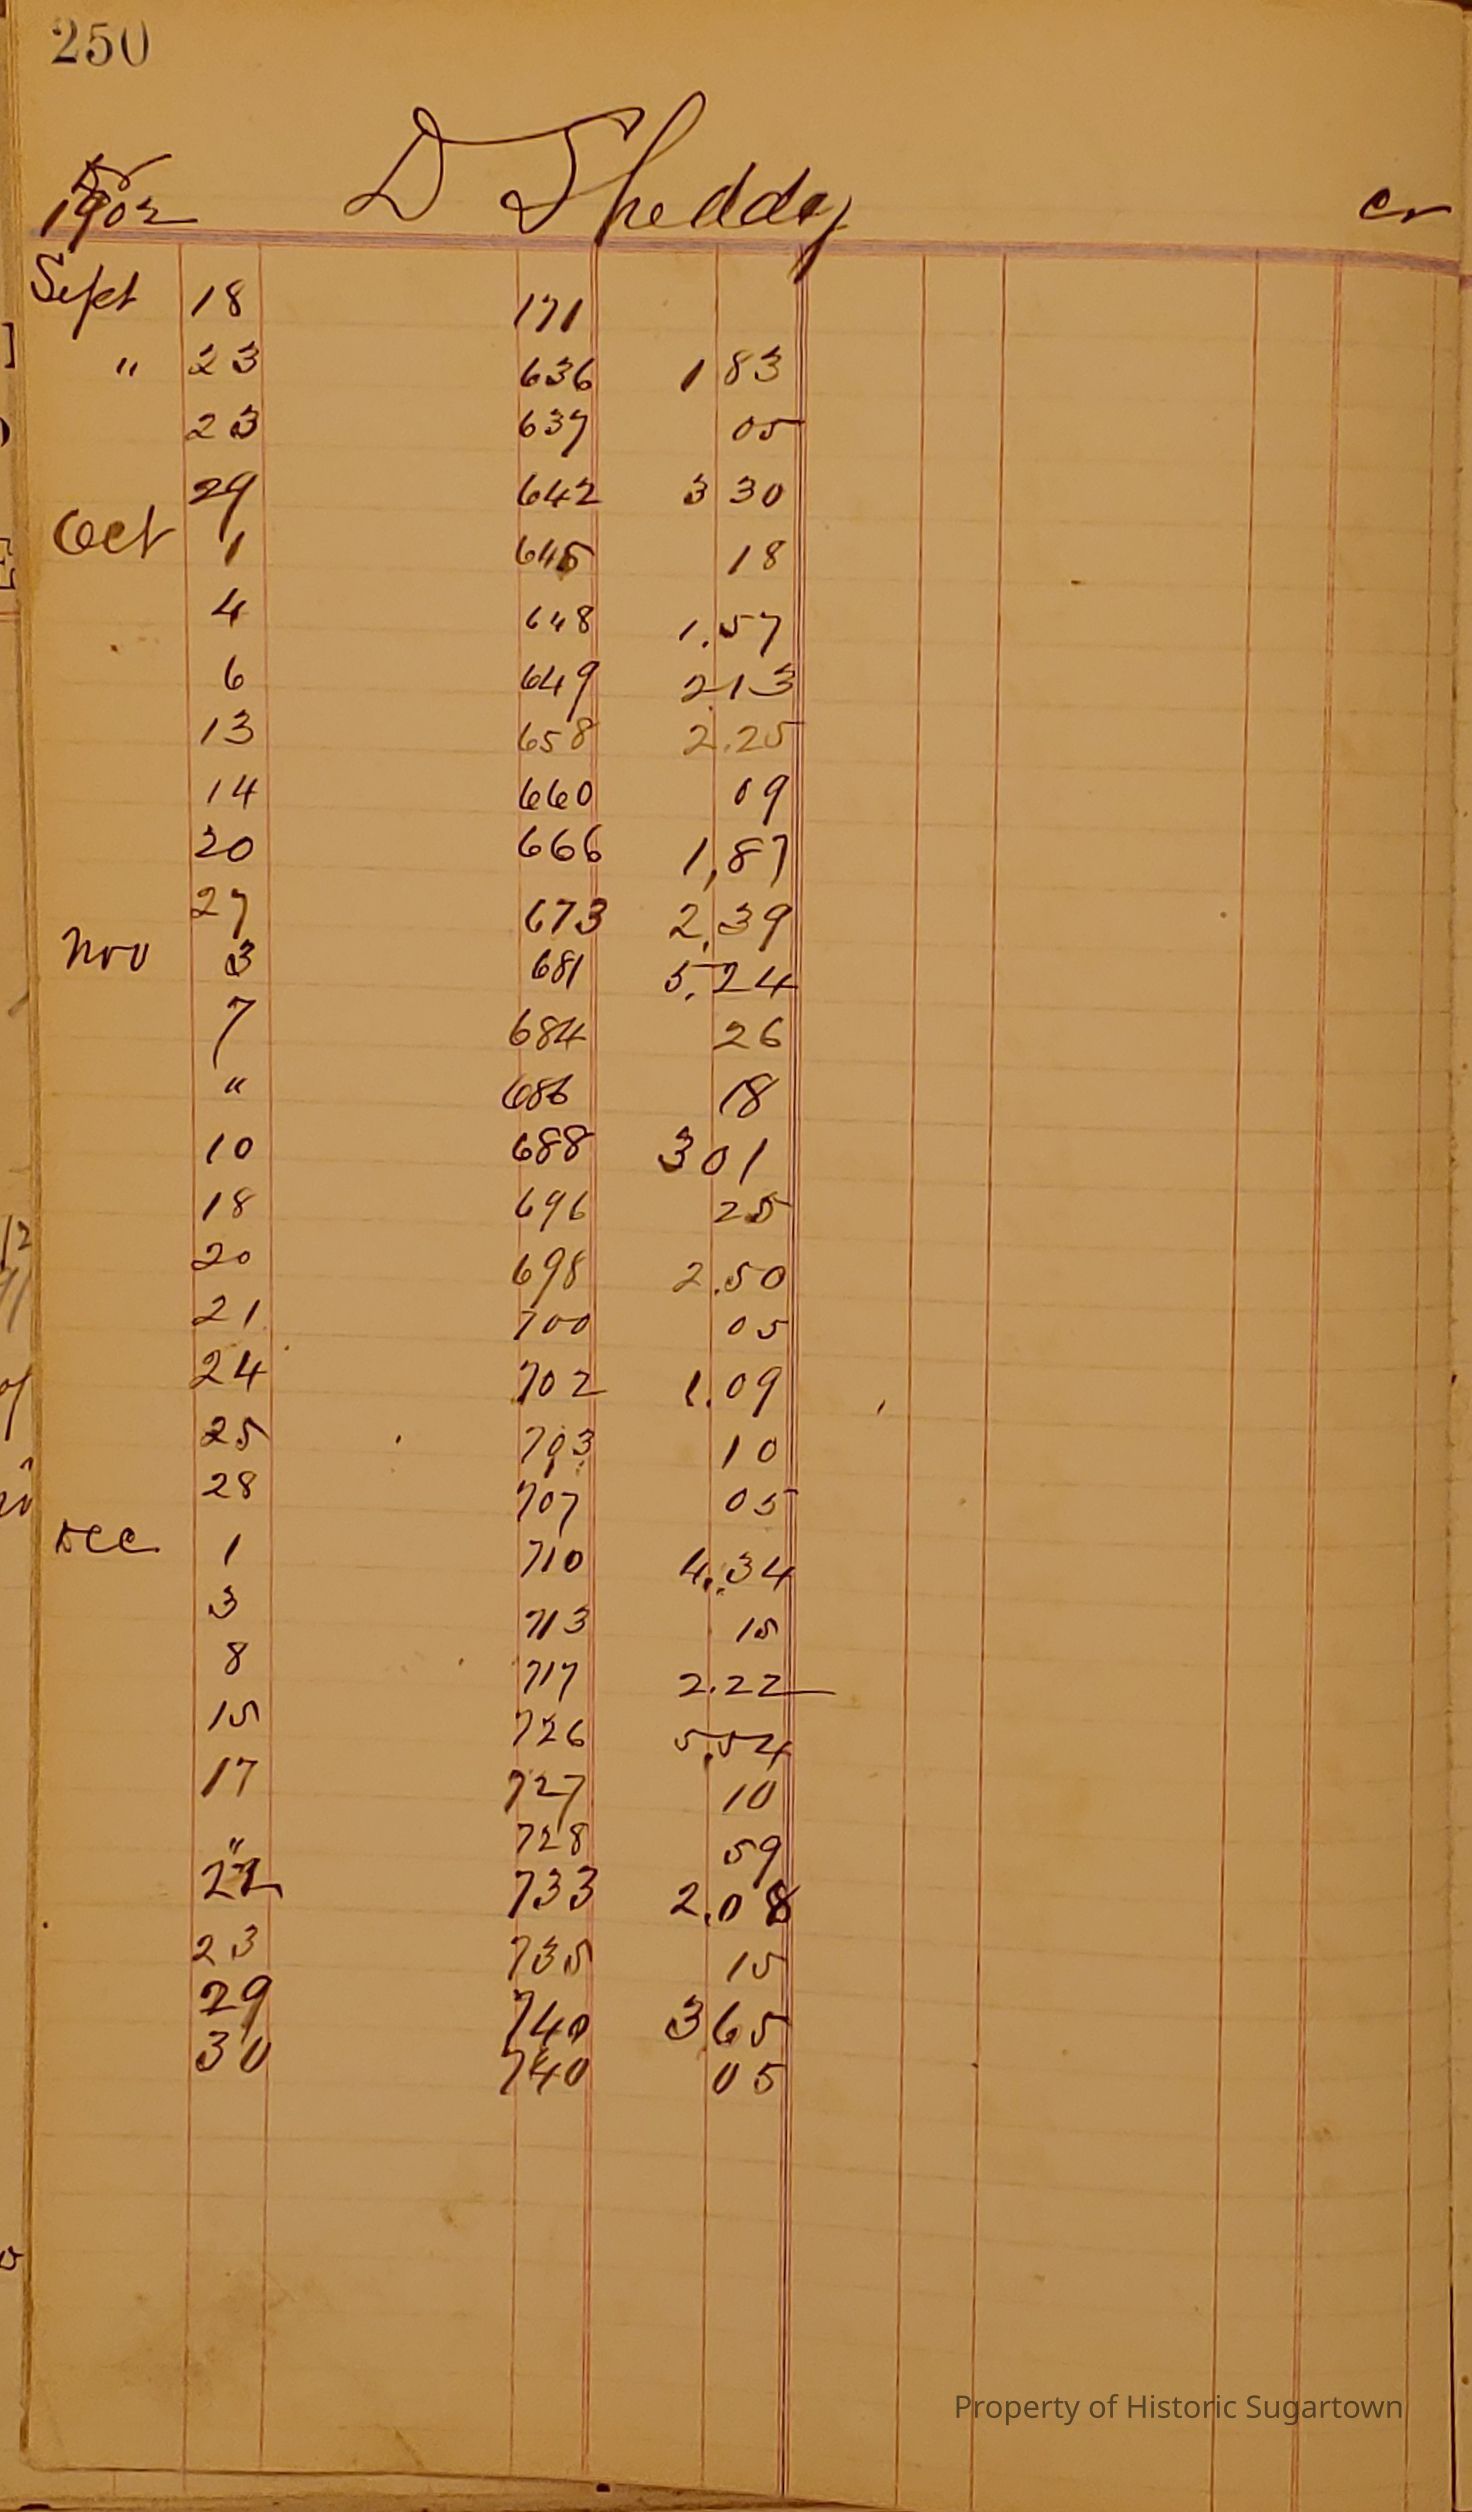 250
Dr D Sheddy Cr
1902
Sept 18 171
" 23 636 1 83
23 637 05
29 642 3 30
Oct 1 645 18
4 648 1.57
6 649 2 13
13 658 2.25
14 660 09
20 666 1,87
27 673 2,39
Nov 3 681 5.24
7 684 26
" 686 18
10 688 3 01
18 696 25
20 698 2.50
21 700 05
24 702 1.09
25 703 10
28 707 05
Dec 1 710 4.34
3 713 15
8 717 2.22
15 726 5.54
17 727 10
" 728 59
22 733 2.08
23 735 15
29 740 3 65
30 740 05
Property of Historic Sugartown